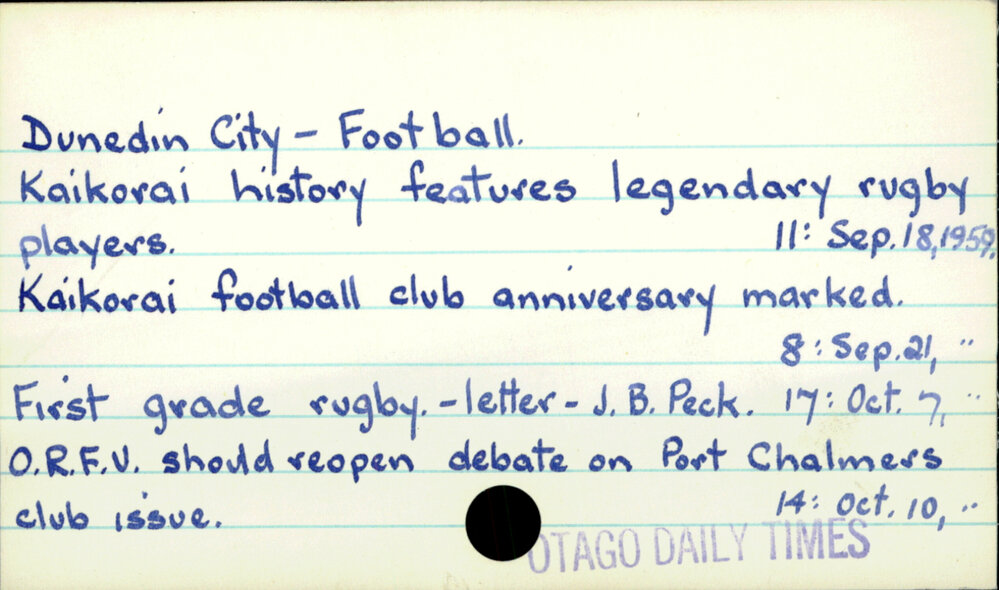 Dunedin City - Football.
Kaikorai history features legendary rugby
players. 11: Sep. 18, 1959.
Kaikorai football club anniversary marked.
8: Sep. 21, "
First grade rugby. - letter - J. B. Peck. 17: Oct. 7, "
O.R.F.U. should reopen debate on Port Chalmers
club issue. 14: Oct. 10, "
OTAGO DAILY TIMES